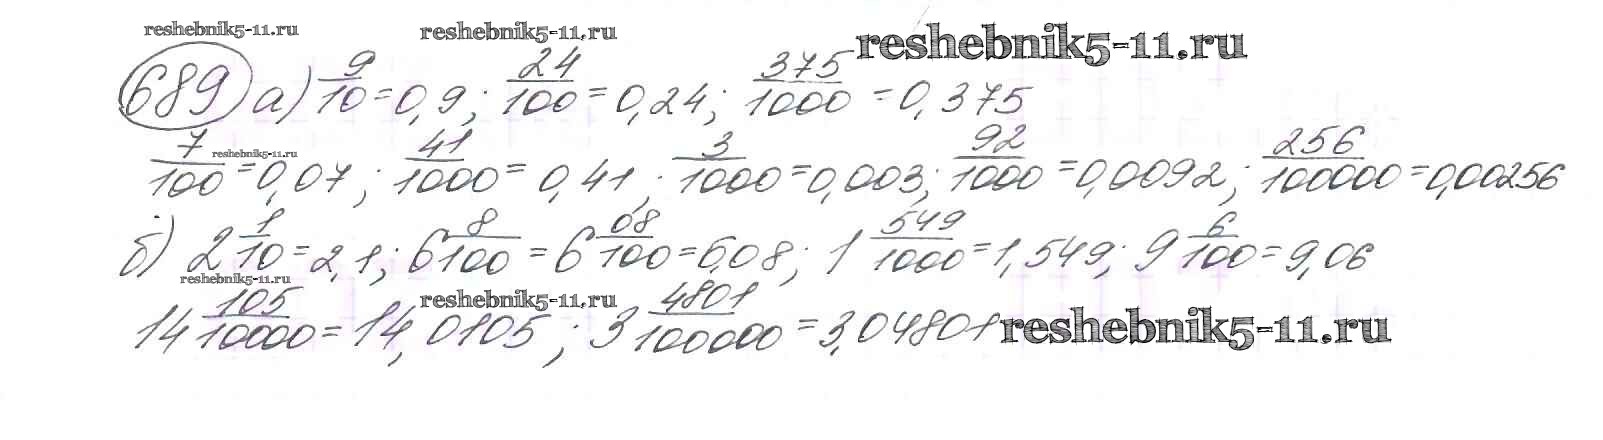 reshebnik5-11.ru reshebnik5-11.ru reshebnik5-11.ru
689 а) 9/10 = 0,9; 24/100 = 0,24; 375/1000 = 0,375
7/100 = 0,07; 41/1000 = 0,41; 3/1000 = 0,003; 92/1000 = 0,0092; 256/100000 = 0,00256
reshebnik5-11.ru
б) 2 1/10 = 2,1; 6 8/100 = 6 08/100 = 6,08; 1 549/1000 = 1,549; 9 6/100 = 9,06
reshebnik5-11.ru reshebnik5-11.ru
14 105/10000 = 14,0105; 3 4801/100000 = 3,04801 reshebnik5-11.ru